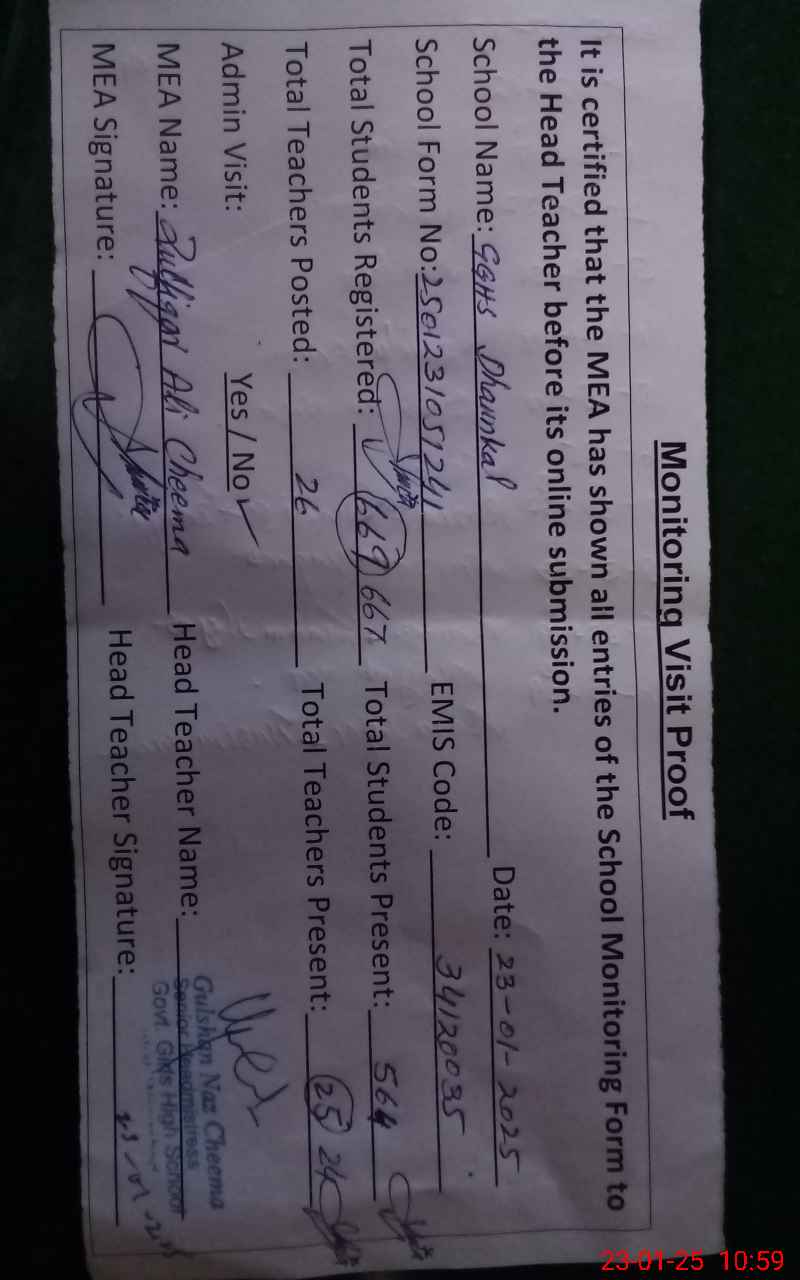 Monitoring Visit Proof
It is certified that the MEA has shown all entries of the School Monitoring Form to
the Head Teacher before its online submission.
School Name: GGHS Dhaunkal Date: 23-01-2025
School Form No: 2501231051241 EMIS Code: 34120035
Total Students Registered: 669 667 Total Students Present: 564
Total Teachers Posted: 26 Total Teachers Present: 25 24
Admin Visit: Yes / No ✓
MEA Name: Zulfiqar Ali Cheema Head Teacher Name:
Gulshan Naz Cheema
Senior Headmistress
Govt. Girls High School
MEA Signature: Head Teacher Signature:
23-01-25 10:59